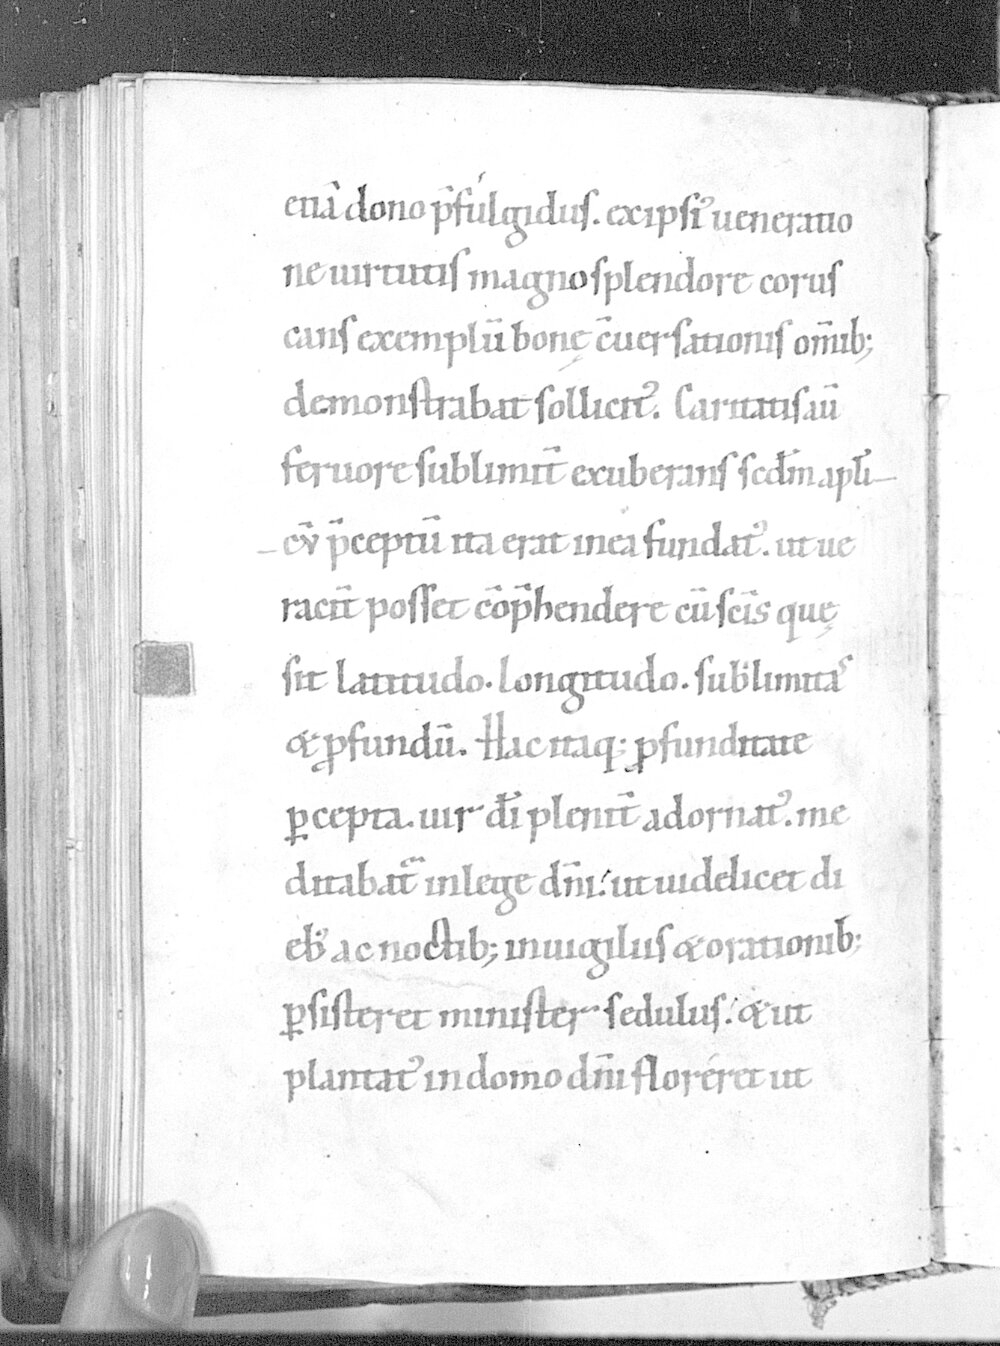 etiā dono p̄fulgidus. ex ipsi᷒ ueneratio
ne uirtutis magno splendore corus
cans exemplū bonę c̄uersationis om̄ib;
demonstrabat sollicit᷒. Caritatis aū
feruore sublimit̄ exuberans scd̄m apłi
cū p̄ceptū ita erat in ea fundat᷒. ut ue
racit̄ posset cōp̄hendere cū scīs quę
sit latitudo. longitudo. sublimitas
& ꝓfundū. Hac itaq; ꝓfunditate
ꝑcepta. uir dī plenit̄ adornat᷒. me
ditabat᷒ in lege dn̄i. ut uidelicet di
eb᷒ ac noctib; in uigiliis & orationib;
ꝑsisteret minister sedulus. & ut
plantat᷒ in domo dn̄i floreret ut